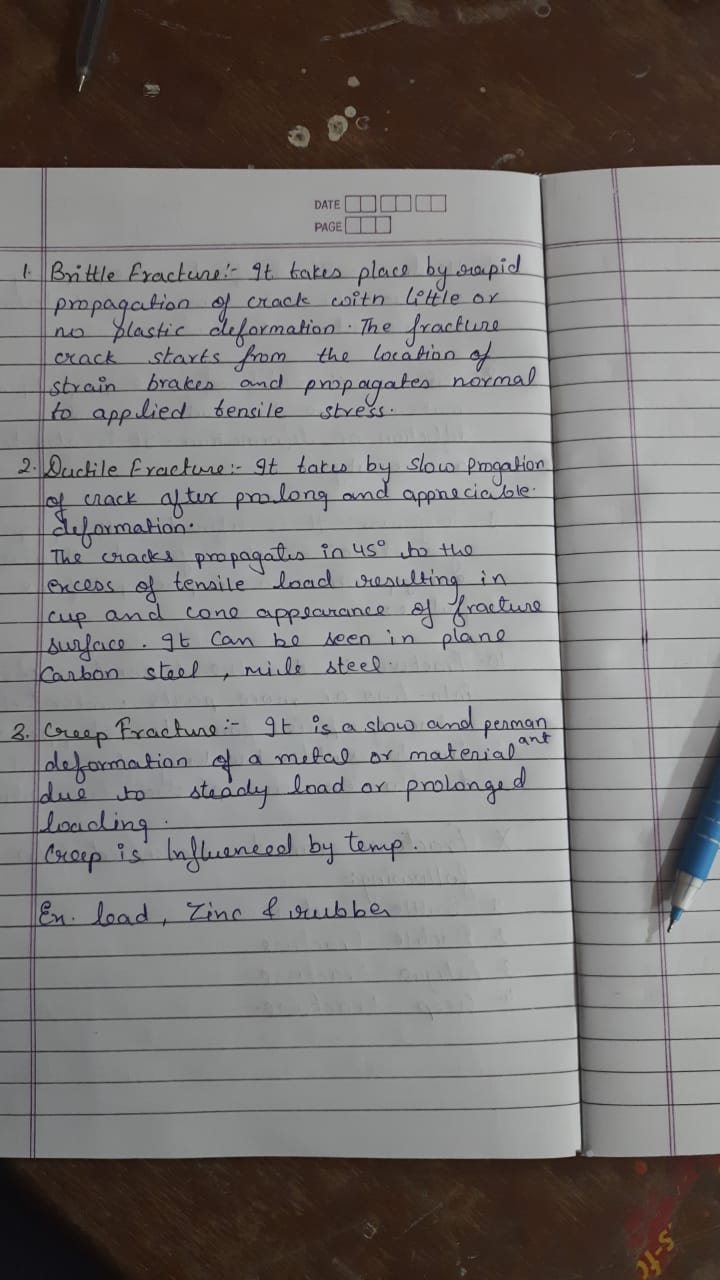 DATE
PAGE
1. Brittle Fracture:- It takes place by rapid
propagation of crack with little or
no plastic deformation. The fracture
crack starts from the location of
strain brakes and propagates normal
to applied tensile stress.
2. Ductile Fracture:- It takes by slow progation
of crack after prolong and appreciable.
deformation.
The cracks propagates in 45° to the
excess of tensile load resulting in
cup and cone appearance of fracture
surface. It can be seen in plane
Carbon steel, mile steel.
3. Creep Fracture:- It is a slow and perman
ant
deformation of a metal or material
due to steady load or prolonged
loading.
Creep is Influenced by temp.
En. lead, Zinc & rubber